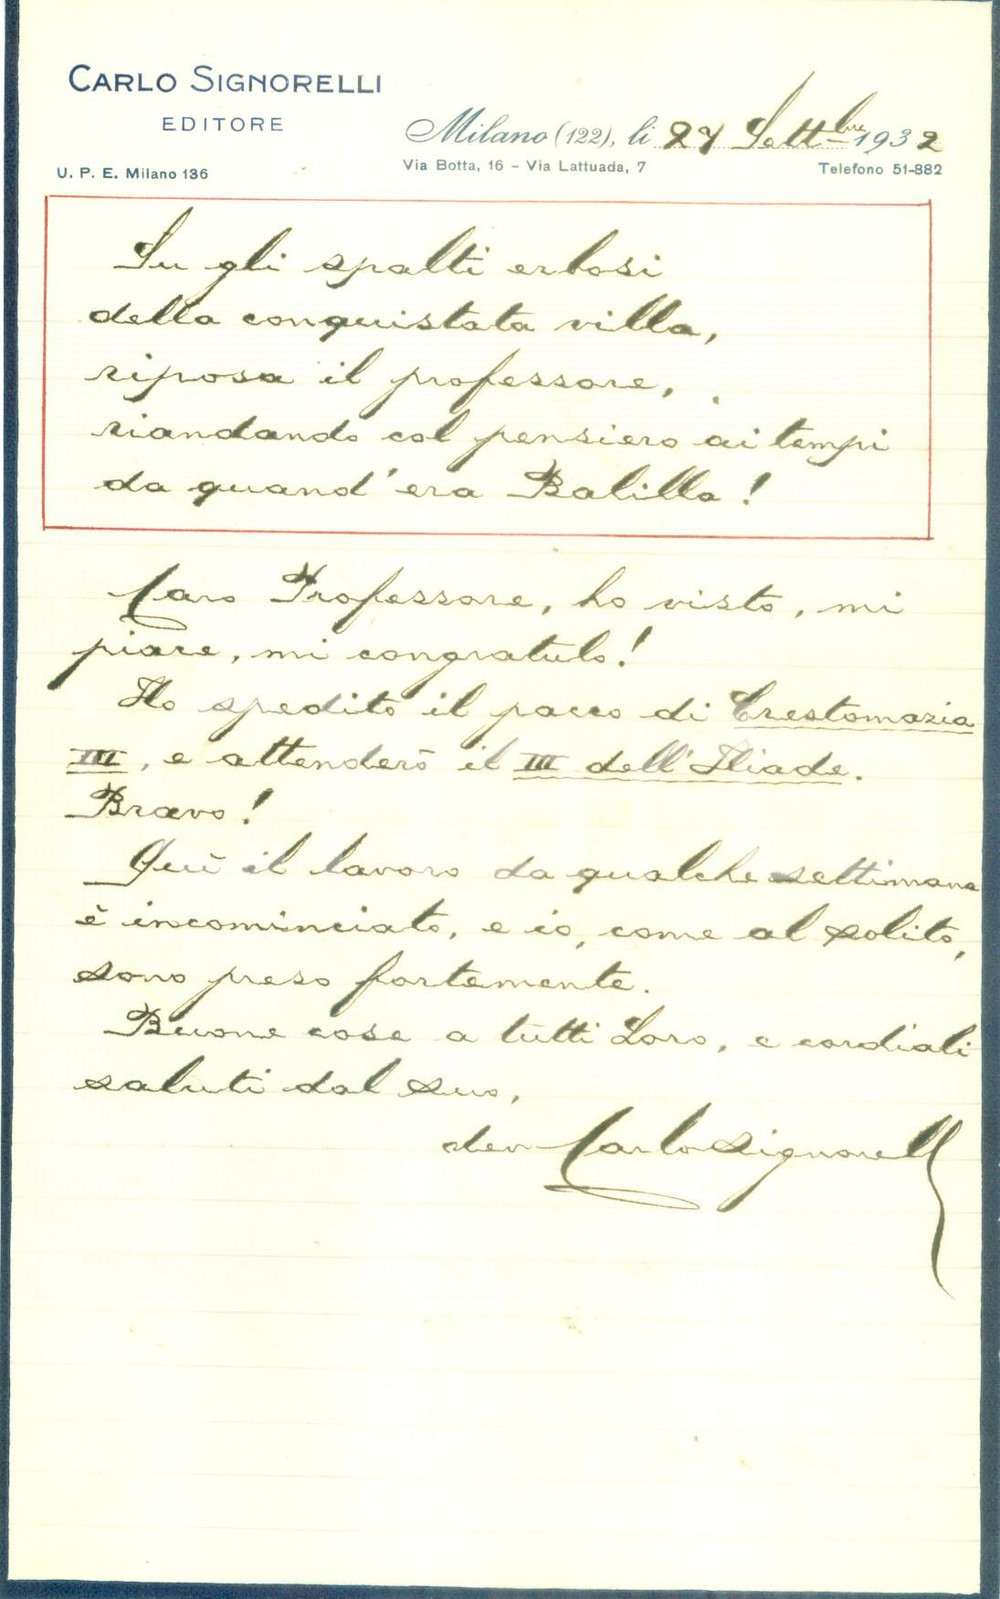 CARLO SIGNORELLI
EDITORE
U. P. E. Milano 136
Milano (122), li 27 Settbre 1932
Via Botta, 16 - Via Lattuada, 7
Telefono 51-882
Su gli spalti erbosi
della conquistata villa,
riposa il professore,
riandando col pensiero ai tempi
da quand'era Balilla!
Caro Professore, ho visto, mi
piace, mi congratulo!
Ho spedito il pacco di Crestomazia
III, e attenderò il III dell'Iliade.
Bravo!
Quì il lavoro da qualche settimana
è incominciato, e io, come al solito,
sono preso fortemente.
Buone cose a tutti Loro, e cordiali
saluti dal suo,
dev Carlo Signorelli